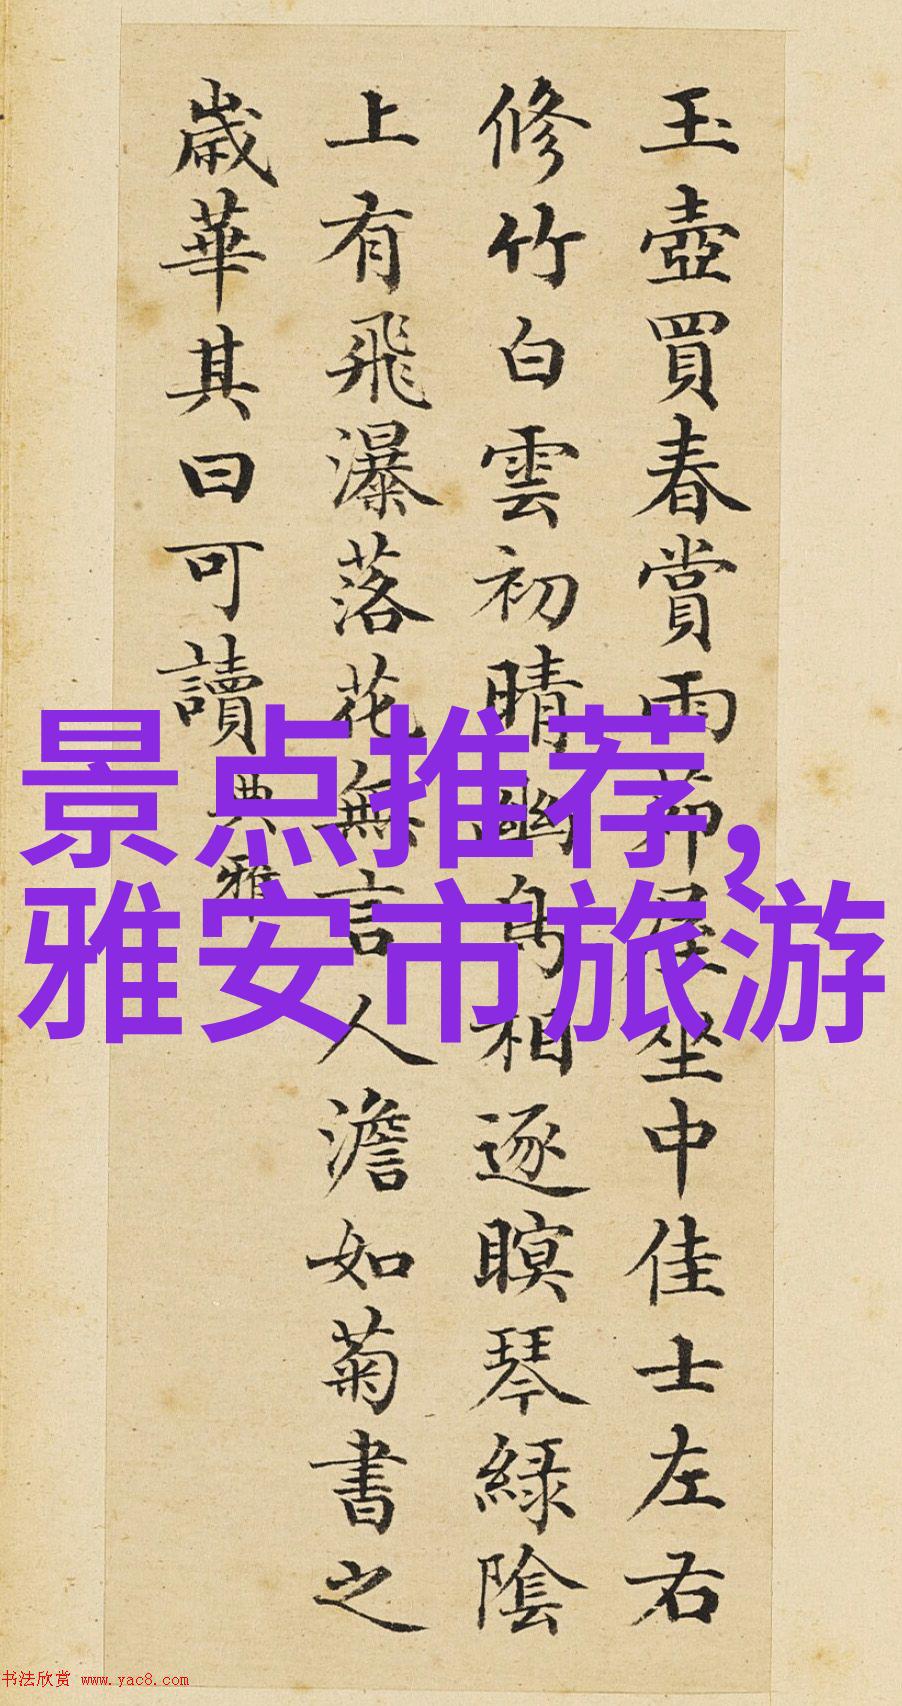 玉壺買春賞雨茆屋坐中佳士左右
修竹白雲初晴幽鳥相逐瞑琴綠陰
上有飛瀑落花無言人澹如菊書之
歲華其曰可讀 典雅
景点推荐,
雅安市旅游
书法欣赏 www.yac8.com